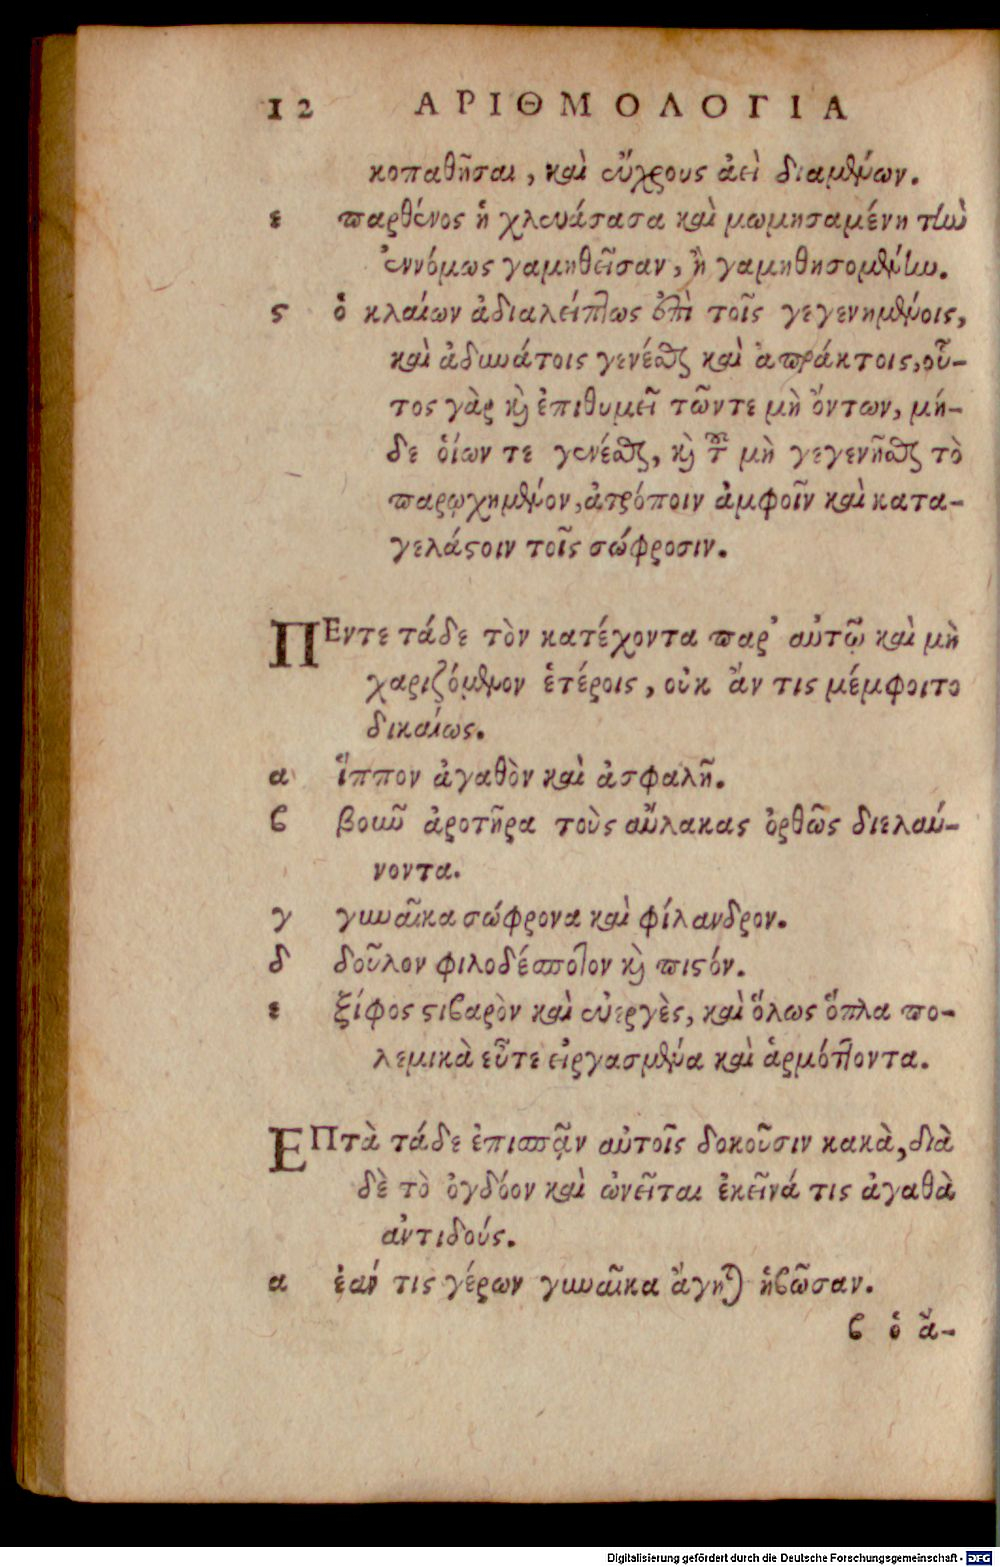 12 ΑΡΙΘΜΟΛΟΓΙΑ
κοπαθῆσαι, καὶ εὔχρους ἀεὶ διαμένων.
ε παρθένος ἡ χλευάσασα καὶ μωμησαμένη τὴν
ἐννόμως γαμηθεῖσαν, ἢ γαμηθησομένην.
ϛ ὁ κλαίων ἀδιαλείπτως ἐπὶ τοῖς γεγενημένοις,
καὶ ἀδυνάτοις γενέσθαι καὶ ἀπράκτοις, οὗ-
τος γὰρ καὶ ἐπιθυμεῖ τῶντε μὴ ὄντων, μή-
δε οἵων τε γενέσθαι, καὶ τῶν μὴ γεγενῆσθαι τὸ
παρῳχημένον, ἀτρόποιν ἀμφοῖν καὶ κατα-
γελάστοιν τοῖς σώφροσιν.
ΠΕντε τάδε τὸν κατέχοντα παρ' αὑτῷ καὶ μὴ
χαριζόμενον ἑτέροις, οὐκ ἄν τις μέμφοιτο
δικαίως.
α ἵππον ἀγαθὸν καὶ ἀσφαλῆ.
β βοῦν ἀροτῆρα τοὺς αὔλακας ὀρθῶς διελαύ-
νοντα.
γ γυναῖκα σώφρονα καὶ φίλανδρον.
δ δοῦλον φιλοδέσποτον καὶ πιστόν.
ε ξίφος στιβαρὸν καὶ εὐεργὲς, καὶ ὅλως ὅπλα πο-
λεμικὰ εὖτε εἰργασμένα καὶ ἁρμόττοντα.
ΕΠτὰ τάδε ἐπισπᾷν αὑτοῖς δοκοῦσιν κακὰ, διὰ
δὲ τὸ ὀγδόον καὶ ὠνεῖται ἐκεῖνά τις ἀγαθὰ
ἀντιδούς.
α ἐάν τις γέρων γυναῖκα ἄγηται ἡβῶσαν.
β ὁ ἄ-
Digitalisierung gefördert durch die Deutsche Forschungsgemeinschaft - DFG